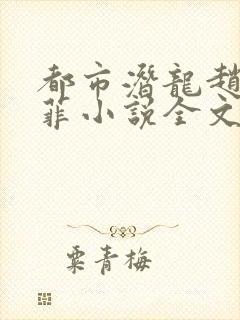 都市潛龍趙
菲小説全文
粟青梅